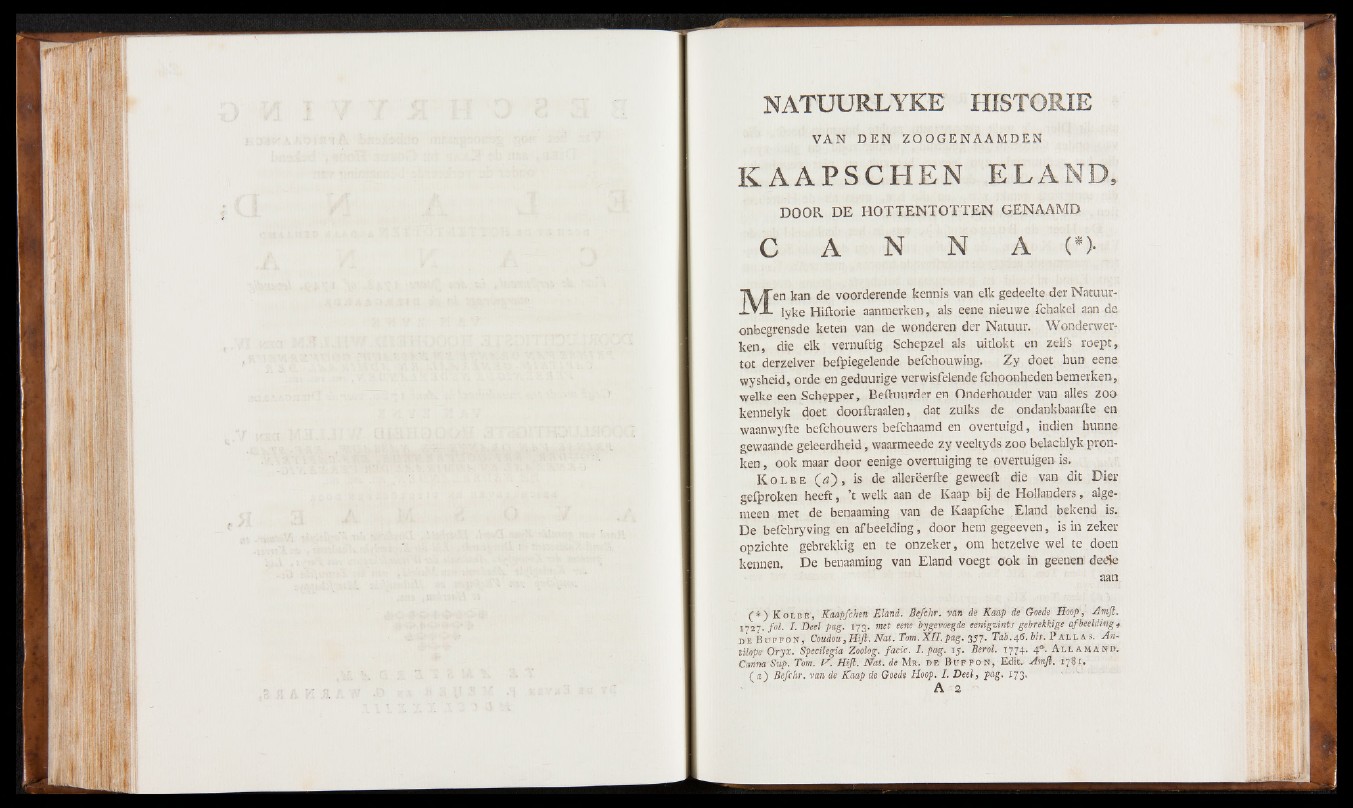 NATUURLYKE HISTORIE
VAN DEN ZOOGENAAMDEN
KAAPSCHEN ELAND,
DOOR DE HOTTENTOTTEN GENAAMD
CANNA (*).
Men kan de voorderende kennis van elk gedeelte der Natuur-
lyke Hiſtorie aanmerken, als eene nieuwe ſchakel aan de
onbegrensde keten van de wonderen der Natuur. Wonderwer-
ken, die elk vernuftig Schepzel als uitlokt en zelfs roept,
tot derzelver beſpiegelende beſchouwing. Zy doet hun eene
wysheid, orde en geduurige verwisſelende ſchoonheden bemerken,
welke een Schepper, Beſtuurder en Onderhouder van alles zoo
kennelyk doet doorſtraalen, dat zulks de ondankbaarſte en
waanwyſte beſchouwers beſchaamd en overtuigd, indien hunne
gewaande geleerdheid, waarmeede zy veeltyds zoo belachlyk pron-
ken, ook maar door eenige overtuiging te overtuigen is.
KOLBE (a), is de allereerſte geweeſt die van dit Dier
geſproken heeft, 't welk aan de Kaap bij de Hollanders, alge-
meen met de benaaming van de Kaapſche Eland bekend is.
De beſchryving en afbeelding, door hem gegeeven, is in zeker
opzichte gebrekkig en te onzeker, om hetzelve wel te doen
kennen. De benaaming van Eland voegt ook in geenen deele
aan
(*) KOLBE, Kaapſchen Eland. Beſchr. van de Kaap de Goede Hoop, Amſt.
1727. fol. I. Deel pag. 173. met eene bygevoegde eenigzints gebrekkige afbeelding.
DE BUFFON, Coudou, Hiſt. Nat. Tom. XII. pag. 357. Tab. 46. bis. PALLAS. An-
tilope Oryx. Specilegia Zoolog. facic. I. pag. 15. Berol. 1774. 4°. ALLAMAND.
Canna Sup. Tom. V. Hiſt. Nat. de MR. DE BUFFON, Edit. Amſt. 1781.
(a) Beſchr. van de Kaap de Goede Hoop. I. Deel, pag. 173.
A 2